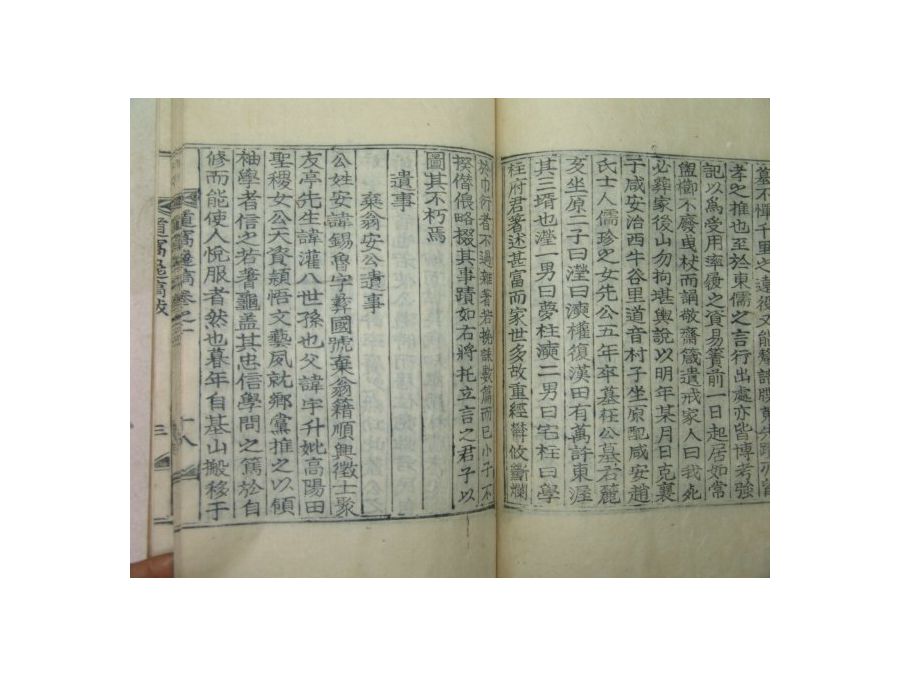 墓不憚千里之遠役又能
孝之推也至於東儒之言行出處亦皆博考強
記以為受用率後之資易簀前一日起居如常
盥櫛不廢曳杖而誦敬齋箴遺戒家人曰我死
必葬家後山勿拘堪輿說以明年某月日克襄
于咸安治西牛谷里道音村子坐原配咸安趙
氏士人儒珍之女先公五年卒墓在公墓右麓
亥坐原二子曰瀅曰漹權復漢田有萬許東渥
其三壻也瀅一男曰夢柱漹二男曰宅柱曰學
柱府君著述甚富而家世多故重經鬱攸斷爛
於巾衍者不過雜著若挽誄數篇而已小子不
揆僭偎略掇其事蹟如右將托立言之君子以
圖其不朽焉
遺事
棄翁安公遺事
公姓安諱錫魯字彛國號棄翁籍順興徵士聚
友亭先生諱灌八世孫也父諱宇升妣高陽田
聖稷女公天資穎悟文藝夙就鄉黨推之以領
袖學者信之若蓍龜盖其忠信學問之篤於自
修而能使人悅服者然也暮年自基山搬移于
道窩遺稿卷之一
十八
道窩遺稿跋
三